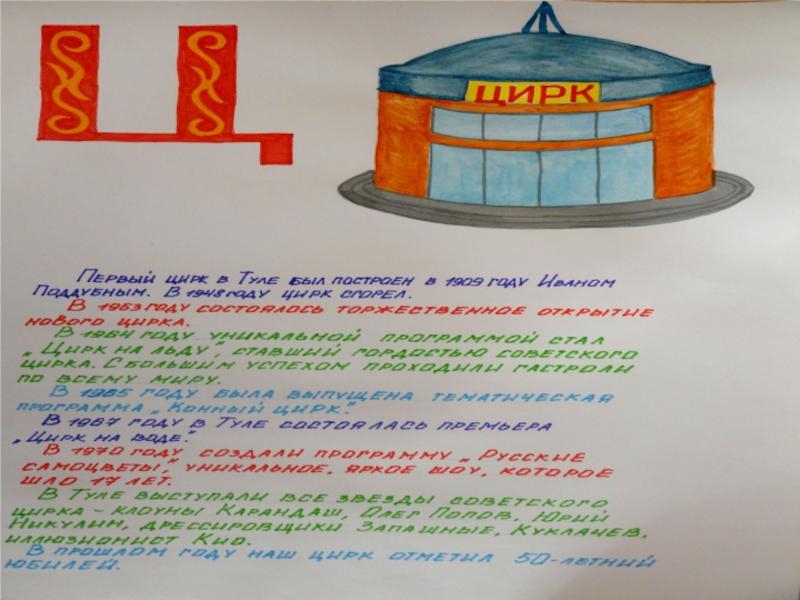 Ц
ЦИРК
Первый цирк в Туле был построен в 1909 году Иваном
Поддубным. В 1948 году цирк сгорел.
В 1963 году состоялось торжественное открытие
нового цирка.
В 1964 году уникальной программой стал
„Цирк на льду", ставший гордостью советского
цирка. С большим успехом проходили гастроли
по всему миру.
В 1965 году была выпущена тематическая
программа „Конный цирк".
В 1967 году в Туле состоялась премьера
„Цирк на воде."
В 1970 году создали программу „Русские
самоцветы," уникальное, яркое шоу, которое
шло 17 лет.
В Туле выступали все звезды советского
цирка - клоуны Карандаш, Олег Попов, Юрий
Никулин, дрессировщики Запашные, Куклачев,
иллюзионист Кио.
В прошлом году наш цирк отметил 50-летний
юбилей.